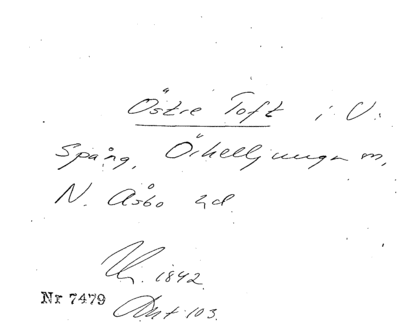 Östre Toft i V.
Spång, Örkelljunga sn,
N. Åsbo hd
Lk. 1842
Nr 7479 Akt 103.